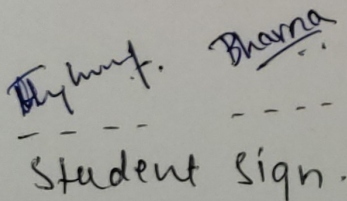 Bharna
Student Sign.